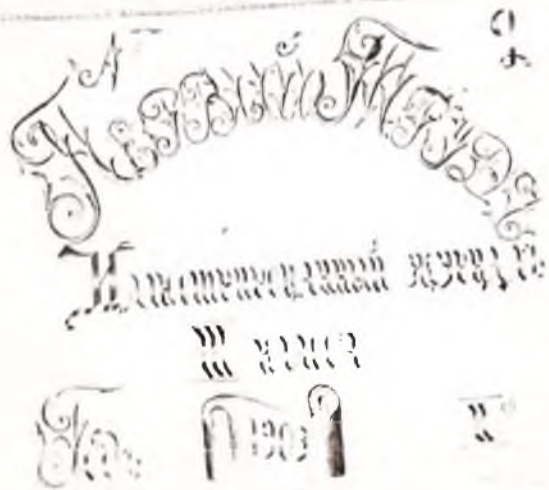 Первый Трудъ
Иллюстрированный журналъ
III класса
Годъ 1903